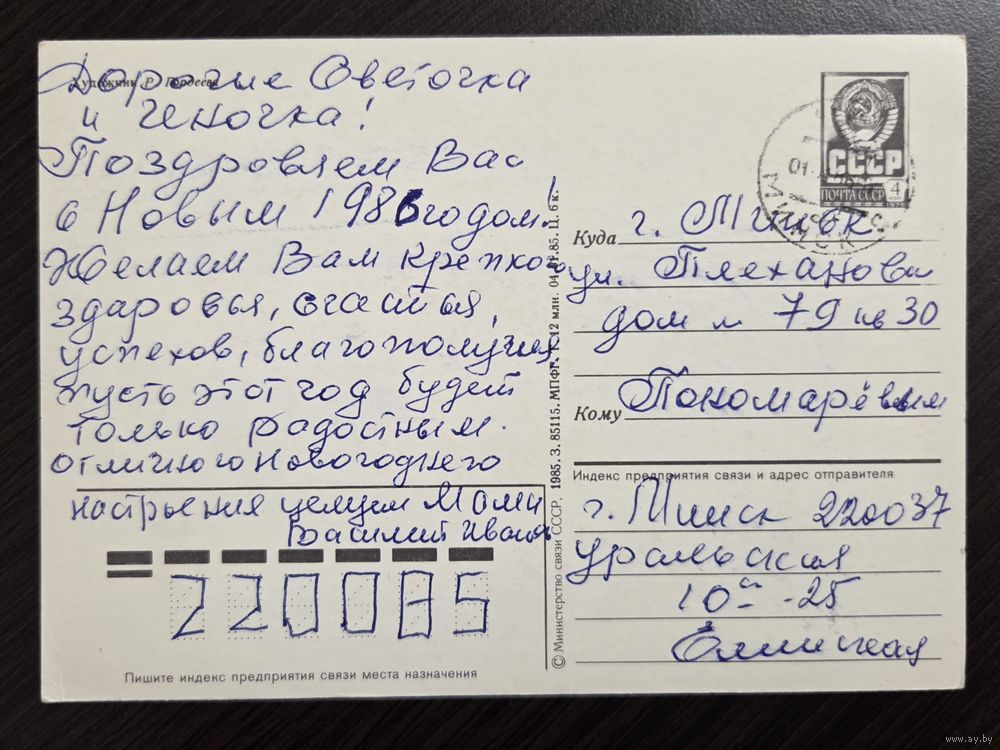 Художник Р. Гордеева
Дорогие Светочка
и Геночка!
Поздравляем Вас
с Новым 1986 годом.
Желаем Вам крепкого
здоровья, счастья,
успехов, благополучия
пусть этот год будет
только радостным.
отличного новогоднего
настрьения целуем Мама
Василий Иванов
220085
Пишите индекс предприятия связи места назначения
© Министерство связи СССР, 1985. З. 85115. МПФГ. Т. 12 млн. 04.01.85. Ц. 6 к.
СССР
ПОЧТА СССР 4
01.
МИНСК
Куда г. Минск
ул. Плеханова
дом № 79 кв 30
Кому Пономарёвым
Индекс предприятия связи и адрес отправителя
г. Минск 220037
Уральская
10 - 25
www.ay.by